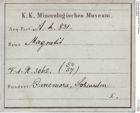 K. K. Mineralogisches Museum.
Acq. Post: A. h. 831.
Name Magnetit
V. d. N. 3062. (50/57)
Fundort: Dannemora, Schweden